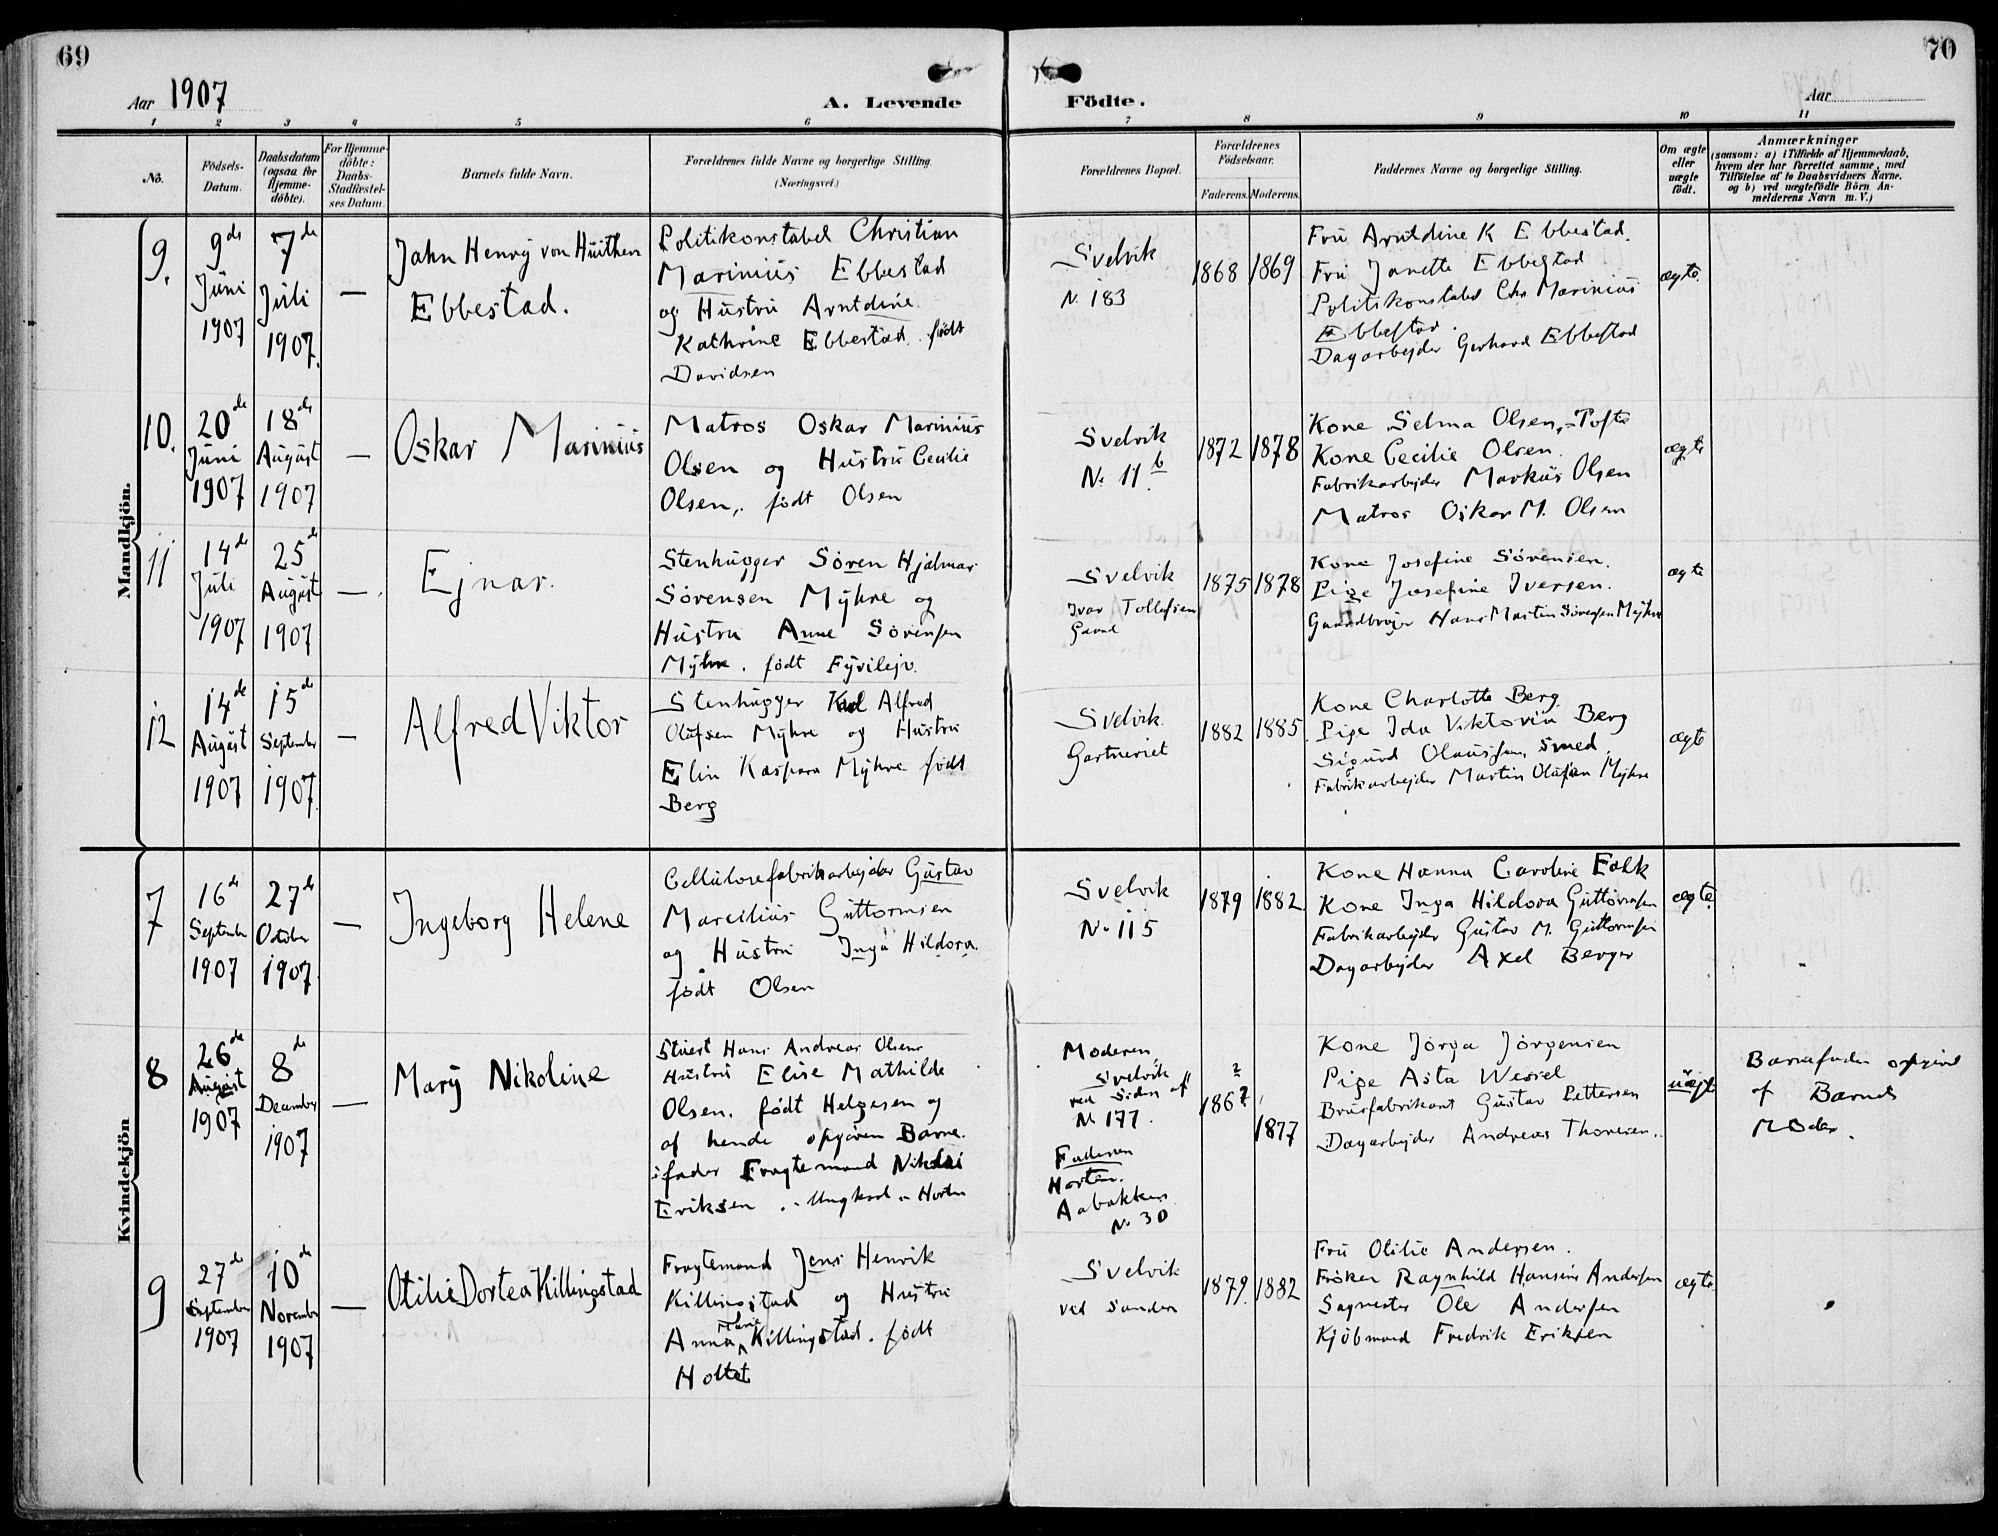 69
70
Aar 1907
A. Levende
Födte.
Aar
1
2
3
4
5
6
7
8
9
10
11
No.
Födsels-
Datum.
Daabsdatum
(ogsaa for
Hjemme-
döbte).
For Hjemme-
döbte:
Daabs-
Stadfæstel-
ses Datum.
Barnets fulde Navn.
Forældrenes fulde Navne og borgerlige Stilling.
(Næringsvei.)
Forældrenes Bopæl.
Forældrenes
Födselsaar.
Faderens.
Moderens.
Faddernes Navne og borgerlige Stilling.
Om ægte
eller
uægte
födt.
Anmærkninger
(saasom: a) i Tilfælde af Hjemmedaab,
hvem der har forrettet samme, med
Tilföielse af to Daabsvidners Navne.
og b) ved uægtefödte Börn An-
melderens Navn m. V.)
Mandkjön.
9.
9de
Juni
1907
7de
Juli
1907.
—
John Henry von Huithen
Ebbestad.
Politikonstabel Christian
Marinius Ebbestad
og Hustru Arntdine
Kathrine Ebbestad. født
Davidsen
Svelvik
N. 183
1868
1869
Fru Arntdine K Ebbestad.
Fru Janette Ebbestad
Politikonstabel Chr. Marinius
Ebbestad.
Dagarbejder Gerhard Ebbestad
ægte.
10.
20de
Juni
1907
18de
August
1907
—
Oskar Marinius
Matros Oskar Marinius
Olsen og Hustru Cecilie
Olsen, født Olsen
Svelvik
N. 11b.
1872
1878
Kone Selma Olsen, Tofte
Kone Cecilie Olsen.
Fabrikarbejder Markus Olsen
Matros Oskar M. Olsen
ægte
11
14de
Juli
1907
25de
August
1907
—
Ejnar.
Stenhugger Sören Hjalmar
Sörensen Myhre og
Hustru Anne Sörensen
Myhre. født
Svelvik
Ivar Tollefsen
Gaard
1875
1878
Kone Josefine Sörensen.
Pige Josefine Iversen.
Hans Martin Sörensen Myhre
ægte
12
14de
August
1907
15de
September
1907
—
Alfred Viktor
Stenhugger Karl Alfred
Olafsen Myhre og Hustru
Elin Kaspara Myhre født
Berg
Svelvik.
Gartneriet
1882
1885
Kone Charlotte Berg
Pige Ida Viktoria Berg
Sigurd Olaussen, Smed
Fabrikarbejder Martin Olafsen Myhre
ægte
Kvindekjön
7
16de
September
1907
27de
October
1907
—
Ingeborg Helene
Cellulosefabrikarbejder Gustav
Marcilius Guttormsen
og Hustru Inga Hildora.
født Olsen
Svelvik
N. 115
1879
1882
Kone Hanna Caroline Falk
Kone Inga Hildora Guttormsen
Fabrikarbejder Gustav M. Guttormsen
Dagarbejder Axel Berger
ægte.
8
26de
August
1907
8de
December
1907
—
Mary Nikoline
Stuert Hans Andreas Olsens
Hustru Elise Mathilde
Olsen. født Helgesen og
af hende opgiven Barne-
fader Fragtemand Nikolai
Eriksen. - Ungkarl - Horten
Moderen
Svelvik
ved Siden af
N. 177.
Faderen
Horten.
Aabakken
N. 30
1867
1877
Kone Jörga Jörgensen
Pige Asta Wessel
Brusfabrikant Gustav Pettersen
Dagarbejder Andreas Thoresen.
uægte
Barnefader opgivet
af Barnets
Moder.
9
27de
September
1907
10de
November
1907
—
Otilie Dortea Killingstad
Fragtemand Jens Henrik
Killingstad og Hustru
Anna Marie Killingstad. født
Holtet
Svelvik
ved Sanden
1879.
1882
Fru Otilie Andersen.
Fröken Ragnhild Hansine Andersen
Sagmester Ole Andersen
Kjöbmand Fredrik Eriksen
ægte